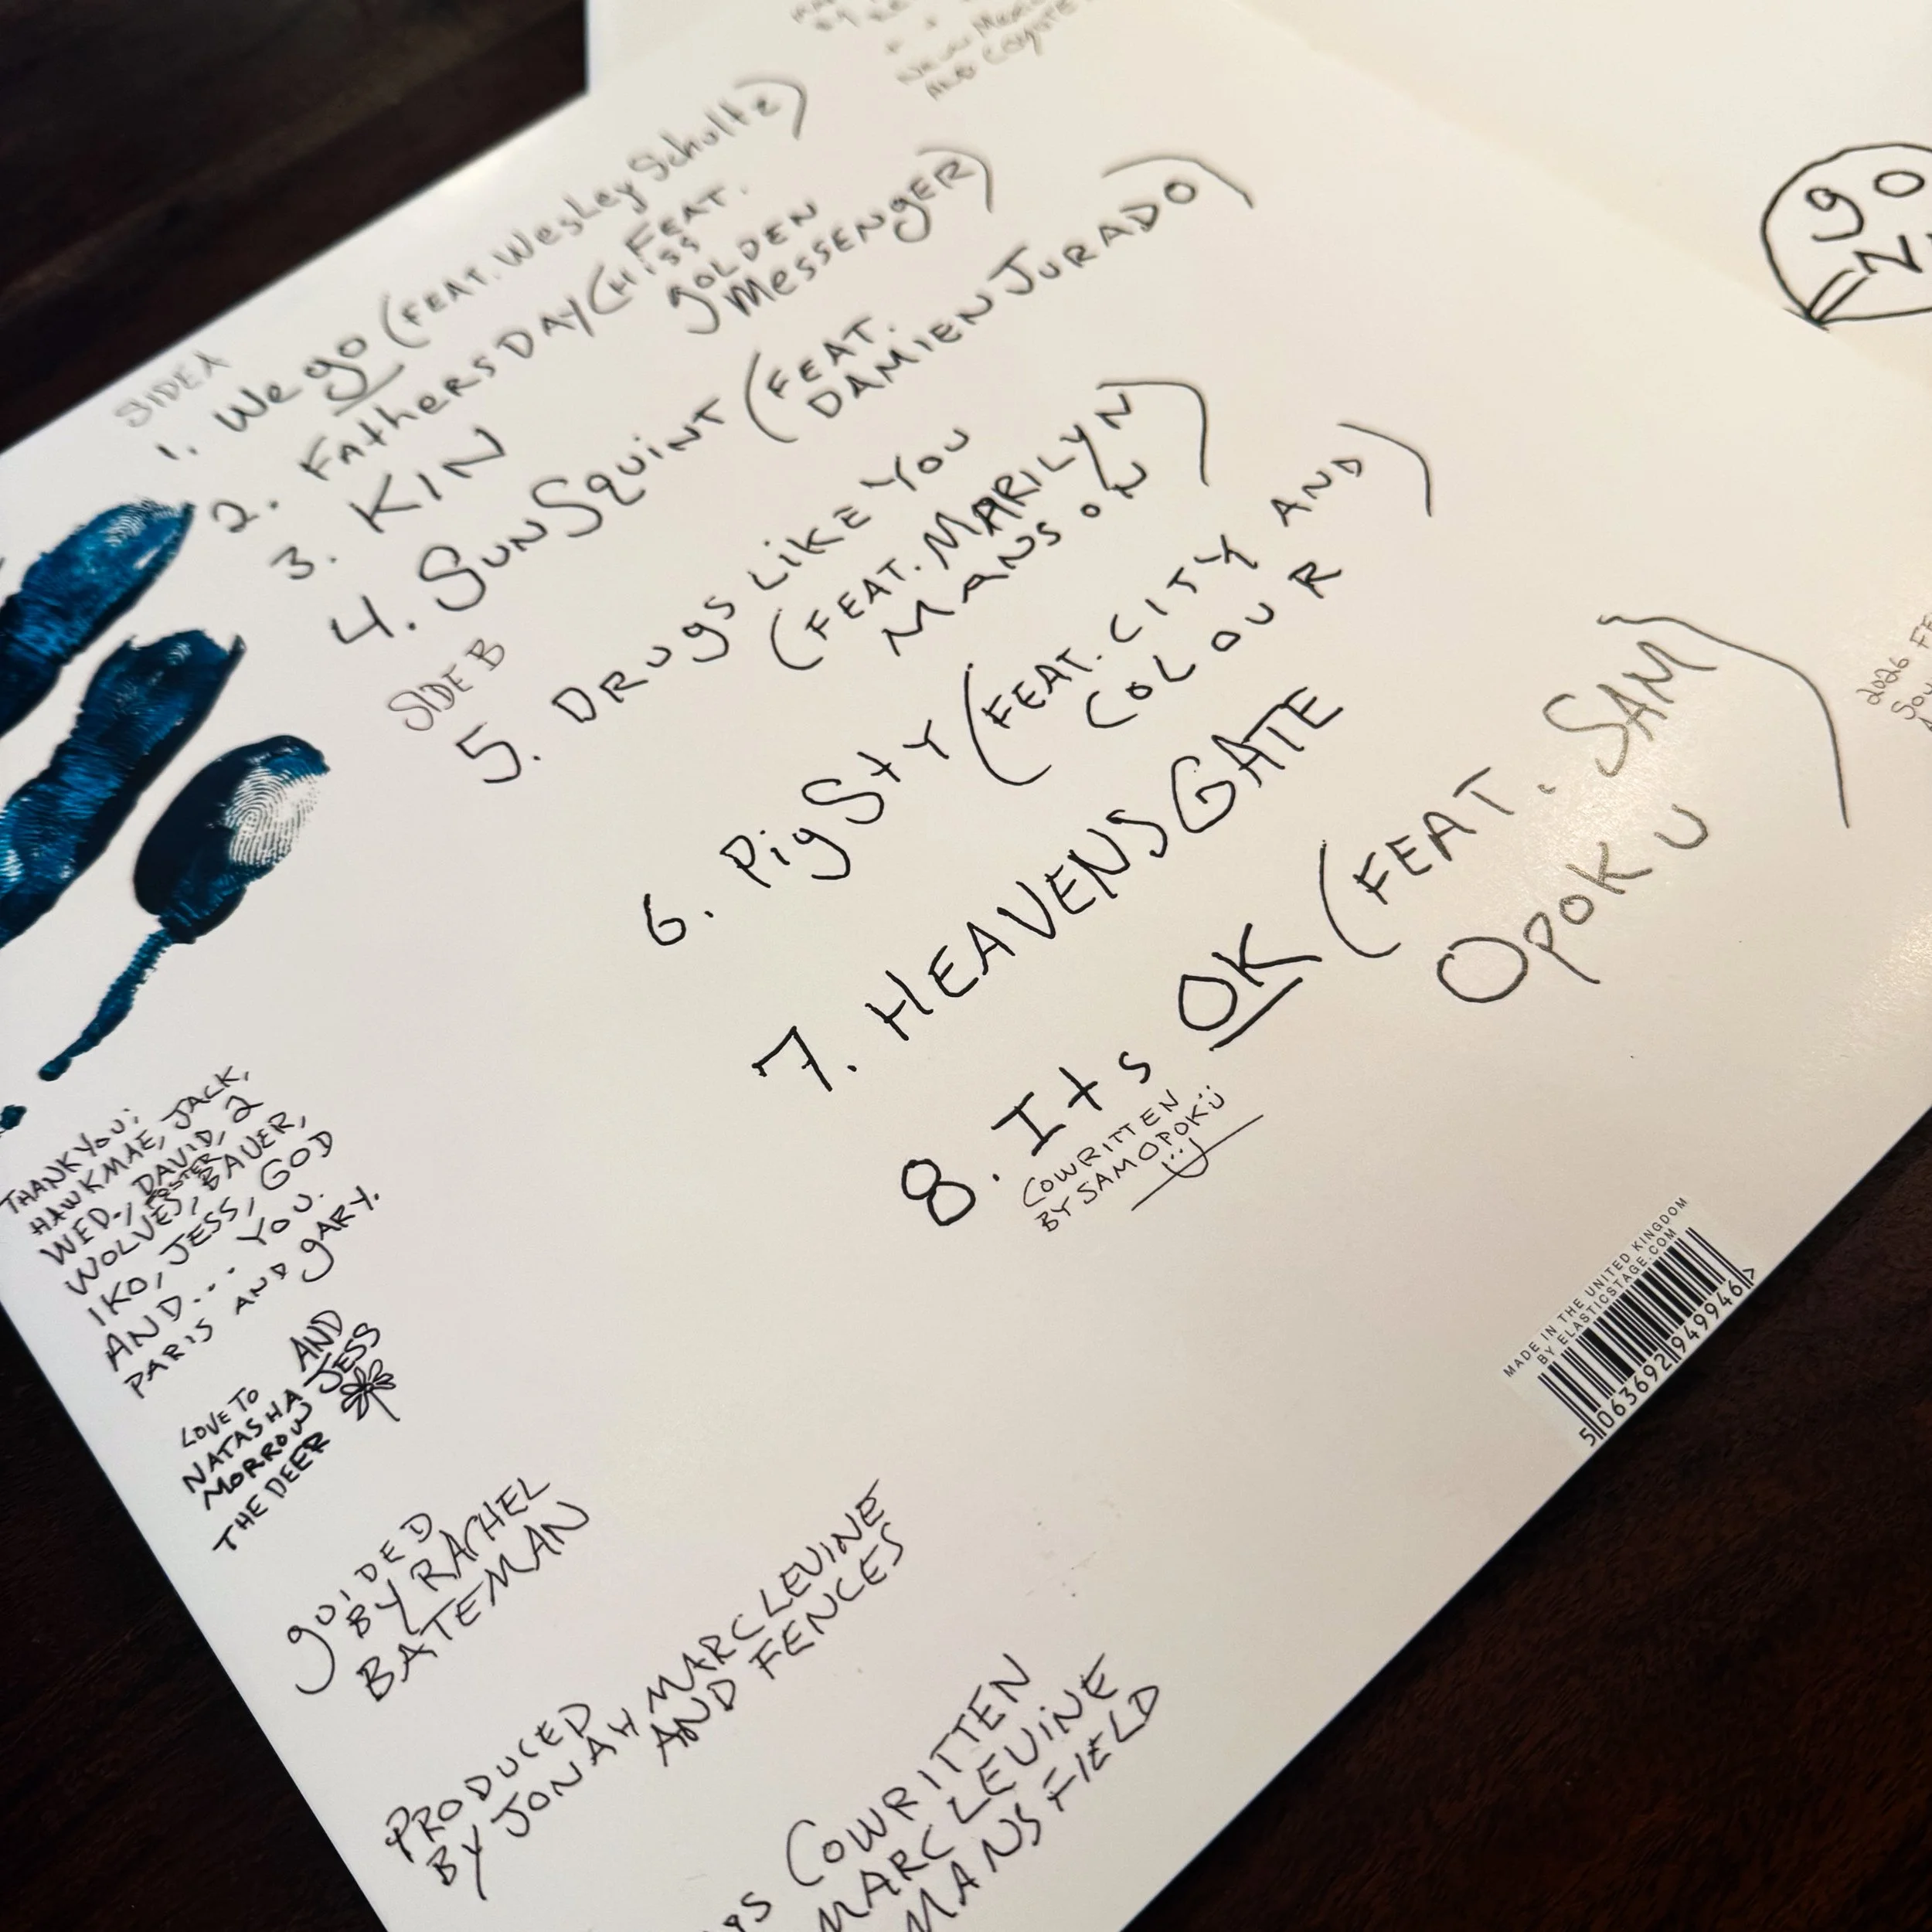 NEW MEX
AND COYOTE
SIDE A
1. We go (FEAT. Wesley Schultz)
2. FAthERS DAY (FEAT.
HiSS
gOLDEN
MESSENgER)
3. KIN
4. SUN SQUINT (FEAT.
DAMIEN JURADO)
SIDE B
5. DRUgS LiKE YOU
(FEAT. MARILYN
MANSON)
6. PigSty (FEAT. CITY AND
COLOUR)
7. HEAVENS GATE
8. Its OK (FEAT. SAM
OPOKU)
COWRITTEN
BY SAM OPOKU
THANK YOU:
HAWKMAE, JACK,
WED., DAVID, 2
FOSTER
WOLVES, BAUER,
IKO, JESS, GOD
AND... YOU.
PARIS AND gARY.
LOVE TO
NATASHA AND JESS
MORROW
THE DEER
gUIDED
BY RACHEL
BATEMAN
PRODUCED
BY JONAH MARC LEVINE
AND FENCES
COWRITTEN
MARC LEVINE
MANSFIELD
MADE IN THE UNITED KINGDOM
BY ELASTICSTAGE.COM
5 063692 949946 >
go
2026 FE